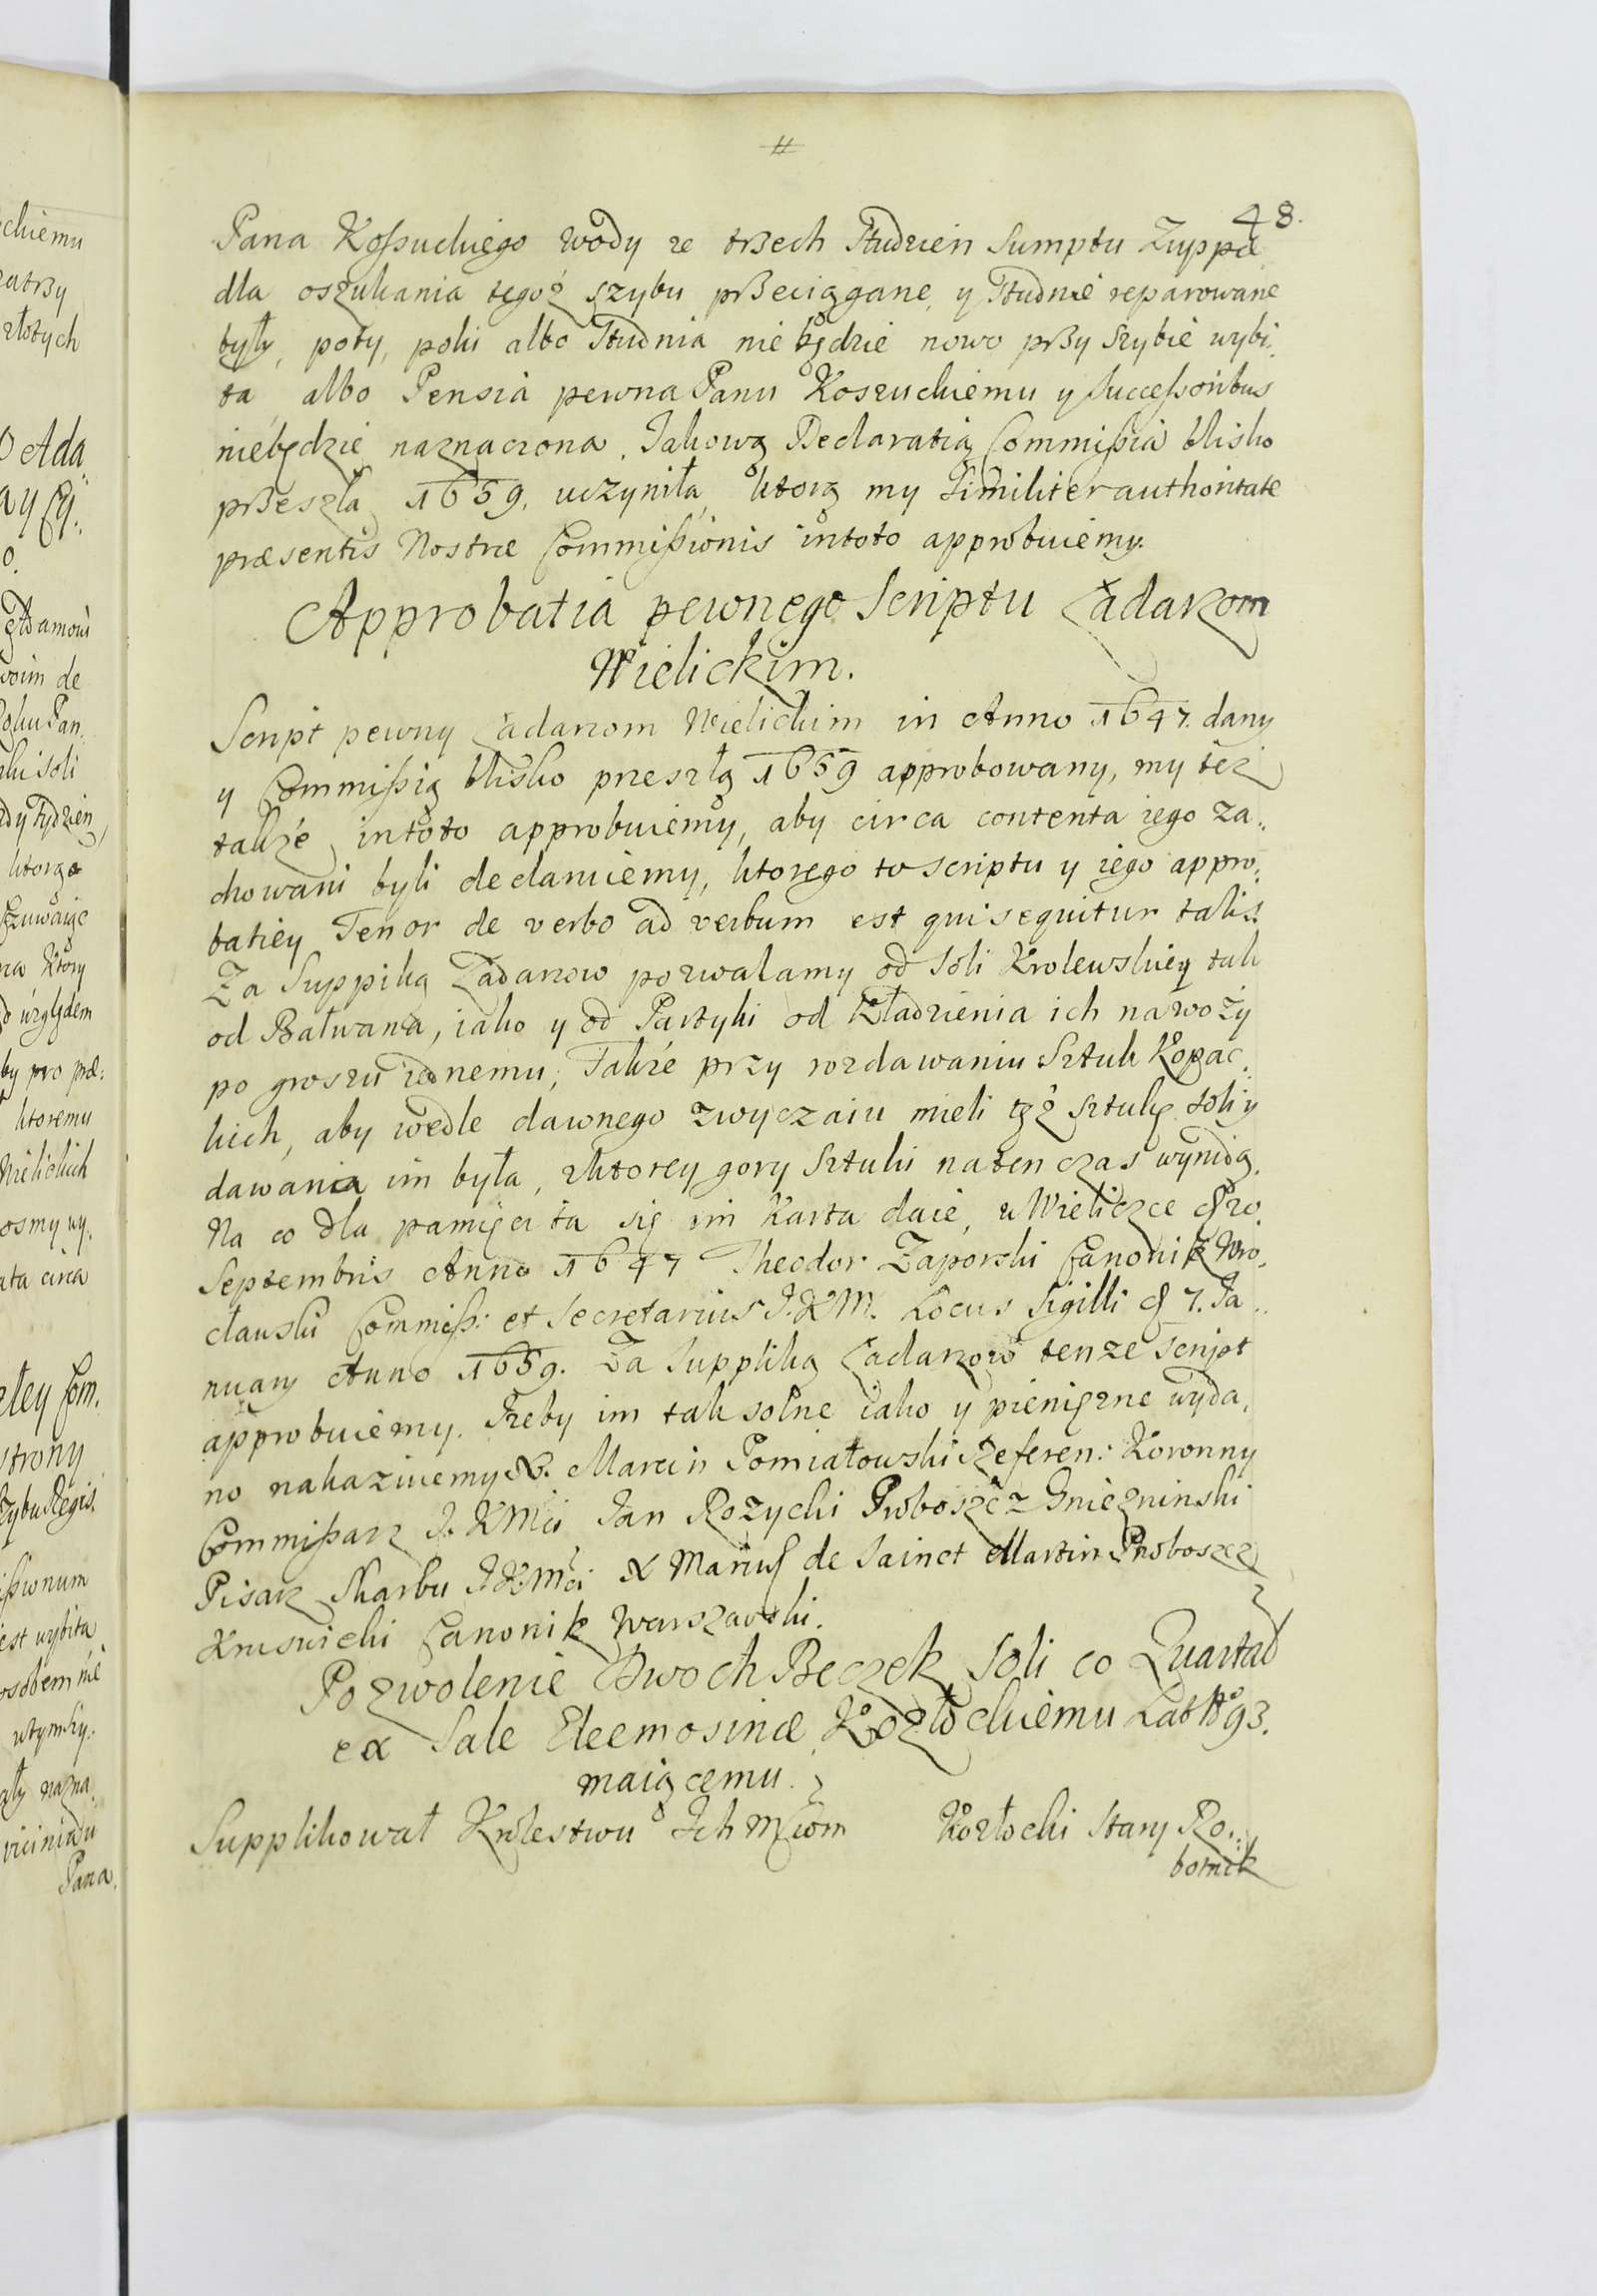 48.
Pana Koſzuckiego wody ze trzech Studzien Sumptu Zuppæ
dla oszukania tegoż szybu przeciągane, y Studnie reparowane
były, poty, poki albo Studnia nie będzie nowo przy Szybie wybi,
ta, albo Pensia pewna Panu Koszuckiemu y Succeſsoribus
niebędzie naznaczona. Jakową Declaratią Commiſsia blisko
przeszła 1659. uczyniła, ktorą my Similiter authoritate
præsentis Nostræ Commiſsionis intoto approbuiemy.
Approbatia pewnego Scriptu Ładarzom
Wielickim.
Script pewny Ładarzom Wielickim in Anno 1647. dany
y Commiſsią blisko przeszłą 1659 approbowany, my też
także intoto approbuiemy, aby circa contenta iego za,,
chowani byli declaruiemy, ktorego to scriptu y iego appro,
batiey Tenor de verbo ad verbum est qui sequitur talis.
Za Suppiką Ładarzow pozwalamy od Soli Krolewskiey tak
od Bałwana, iako y od Partyki od kładzienia ich nawozy
po groszu iednemu, Także przy rozdawaniu Sztuk Kopac,
kich, aby wedle dawnego zwyczaiu mieli tęż sztukę soli y
dawania im była, z ktorey gory Sztuki naten czas wynidą.
Na co dla pamięci ta się im Karta daie, w Wieliczce
Septembris Anno 1647 Theodor Zaporski Canonik Wro,
cławski Commiſs: et Secretarius J.K.M. Locus Sigilli 7. Ja,,
nuary Anno 1659. Za Suppliką Ładarzow tenze script
approbuiemy. Zeby im tak solne iako y pienięzne wyda,
no nakazuiemy Marcin Pomiatowski Referen: Koronny
Commiſsarz J. KMci Jan Rozycki Proboszcz Gniezninski
Pisarz Skarbu J.K.Mci X Marius de Sainct Martin Proboszcz
Kruswicki Canonik Warszawski.
Pozwolenie Dwoch Beczek Soli co Quartał
ex Sale Eleemosinæ Kozłockiemu Lat No 93.
maiącemu.
Supplikowat Krolestwu Ich Mciom Kozłocki Stary Ro,,
botnik